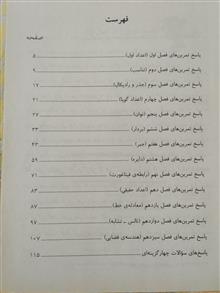 فهرست
صفحه
پاسخ تمرین‌های فصل اول (اعداد اول) ۵
پاسخ تمرین‌های فصل دوم (تناسب) ۹
پاسخ تمرین‌های فصل سوم (جذر و رادیکال) ۱۷
پاسخ تمرین‌های فصل چهارم (اعداد گویا) ۲۱
پاسخ تمرین‌های فصل پنجم (توان) ۲۷
پاسخ تمرین‌های فصل ششم (بردار) ۳۳
پاسخ تمرین‌های فصل هفتم (جبر) ۴۳
پاسخ تمرین‌های فصل هشتم (دایره) ۵۹
پاسخ تمرین‌های فصل نهم (رابطه‌ی فیثاغورث) ۷۱
پاسخ تمرین‌های فصل دهم (اعداد حقیقی) ۸۳
پاسخ تمرین‌های فصل یازدهم (معادله‌ی خط) ۸۷
پاسخ تمرین‌های فصل دوازدهم (تالس ـ تشابه) ۹۷
پاسخ تمرین‌های فصل سیزدهم (هندسه‌ی فضایی) ۱۰۷
پاسخ تمرین‌های سؤالات چهارگزینه‌ای ۱۱۵